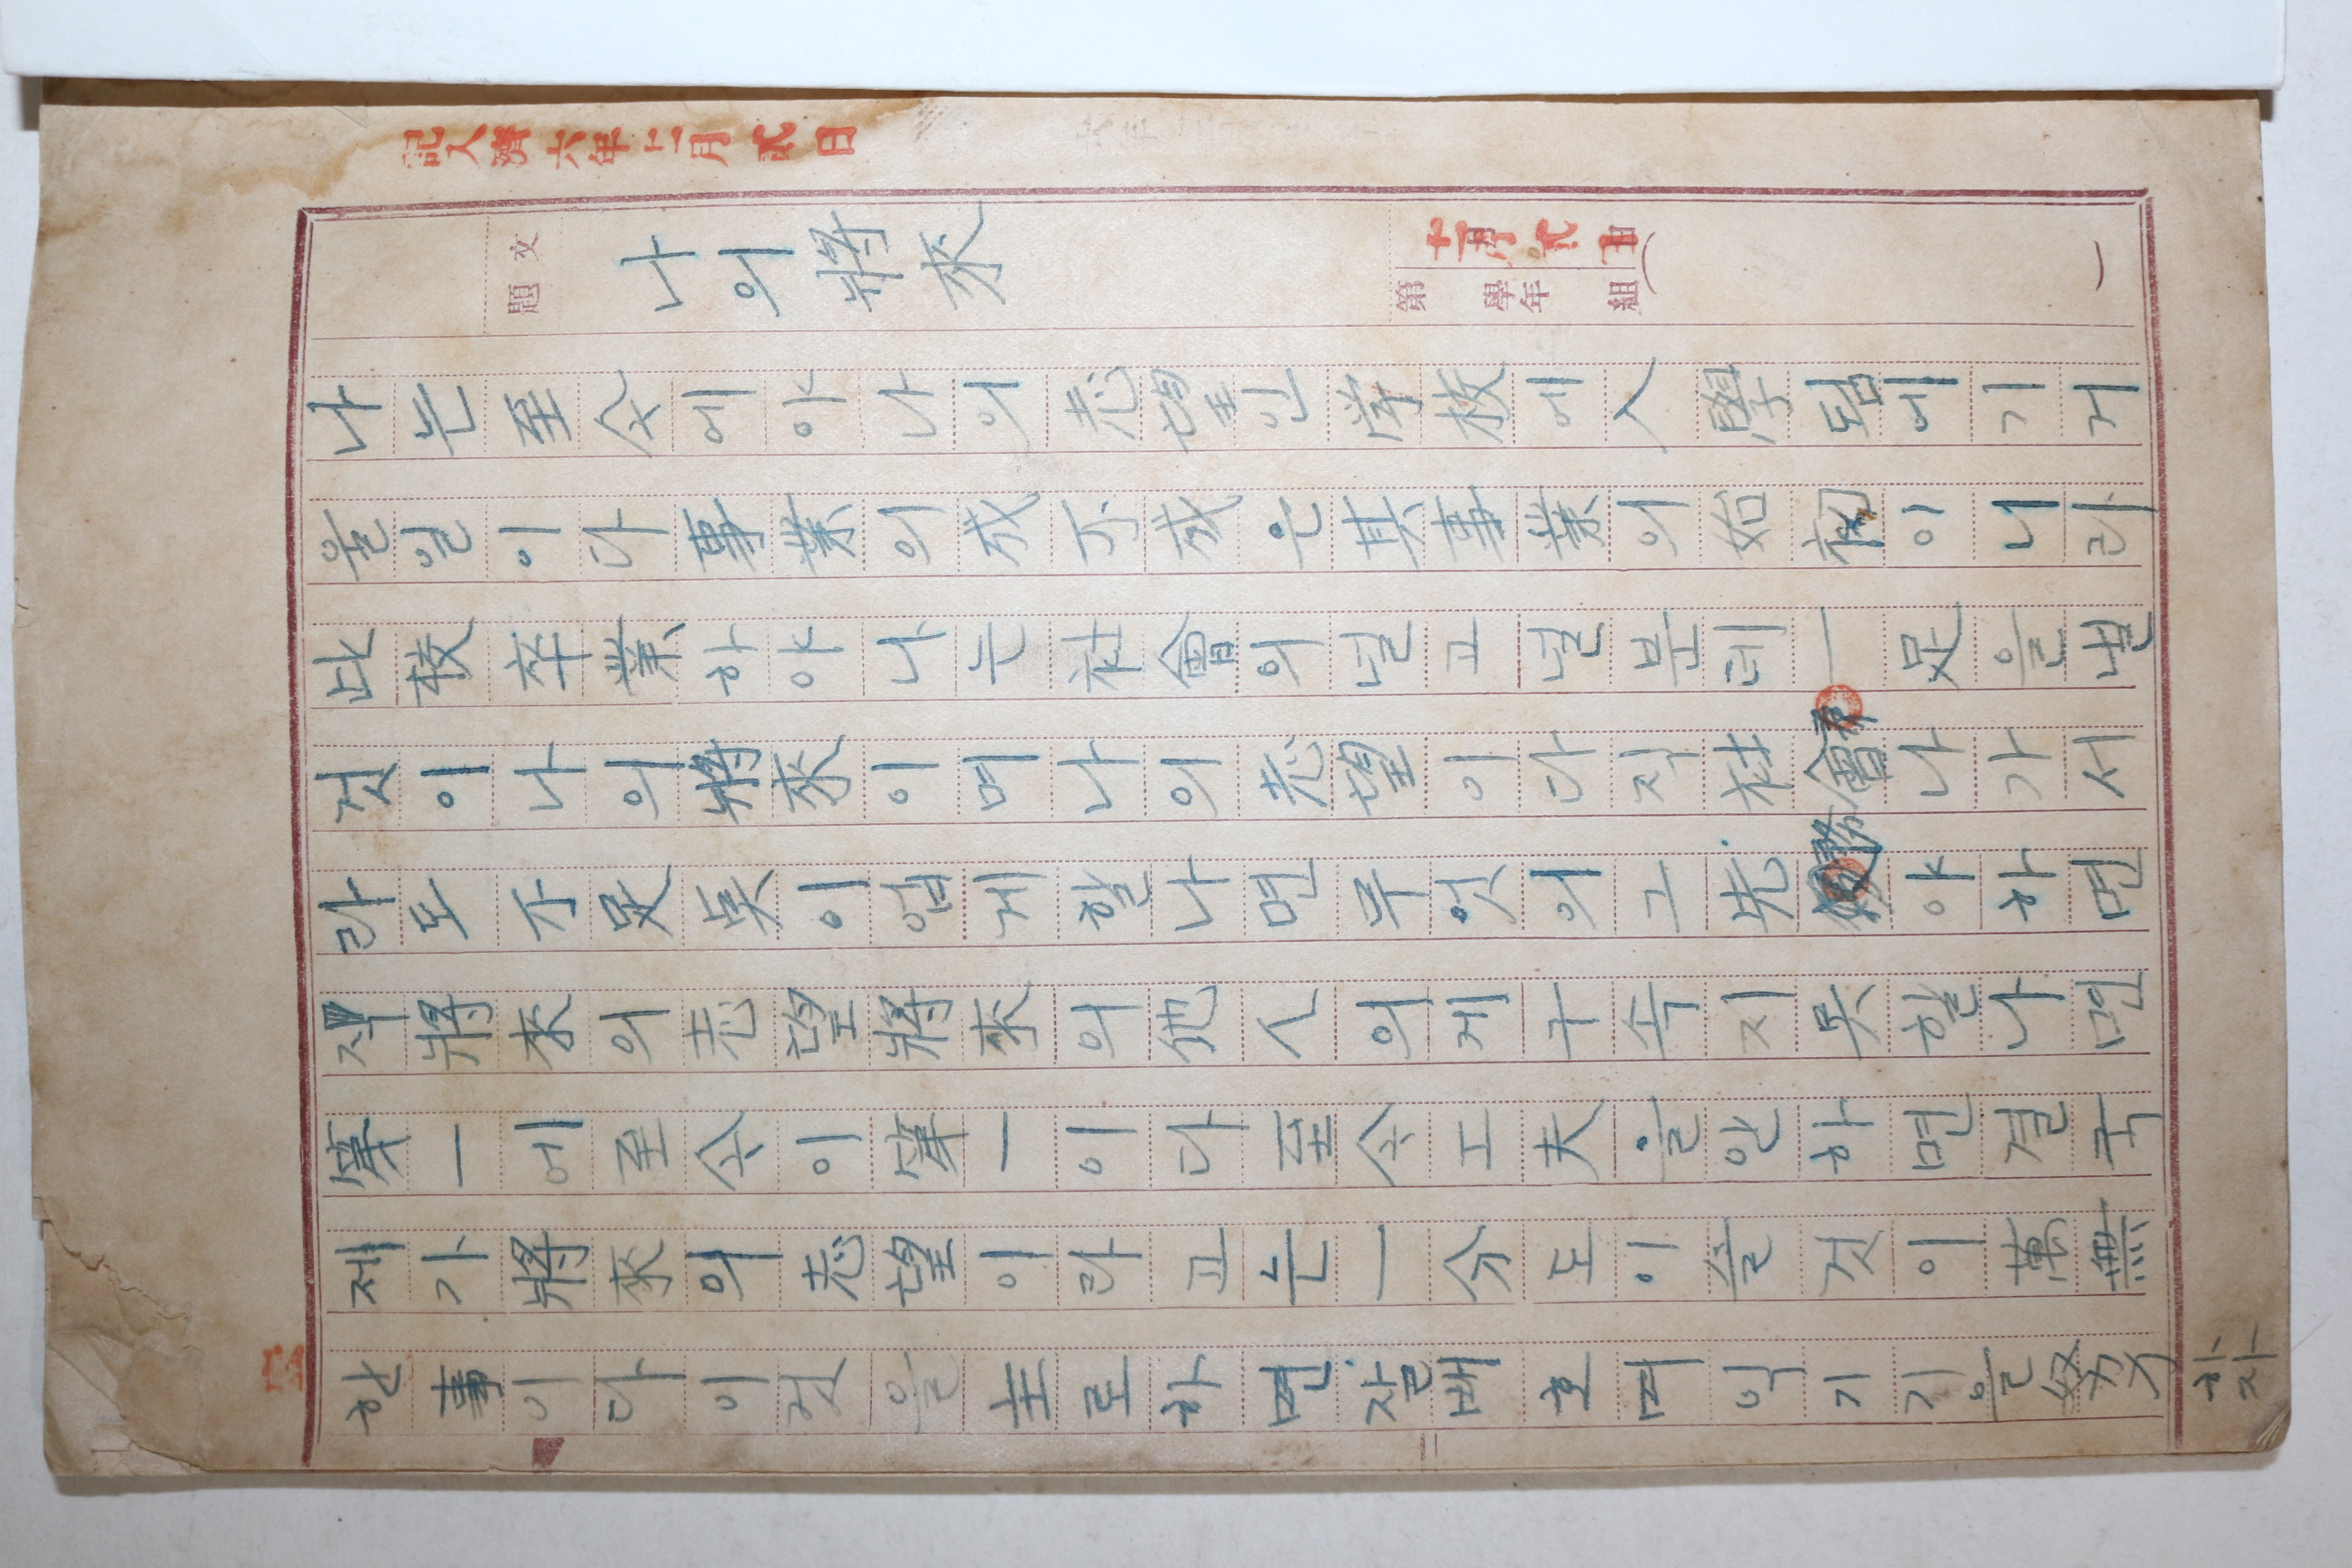 記入濟 六年十二月貳日
文題 나의將來
十二月貳日
第 學年 組
나는至今에야나의志望인学校에入學됨에기거
울일이다事業의成不成은其事業의始初이니라
此校卒業하야나는社會의널고널분데一足을밸
것이나의將來이며나의志望이다직社會나가서
라도不足点이업게할나면무엇의그先務야하면
將來의志望將來의他人의게구속지못할나면
第一에至今이第一이다至今工夫을안하면결국
제가將來의志望이라고는一分도이슬것이萬無
한事이다이것을主로하면잘배호며익기기을努力하자